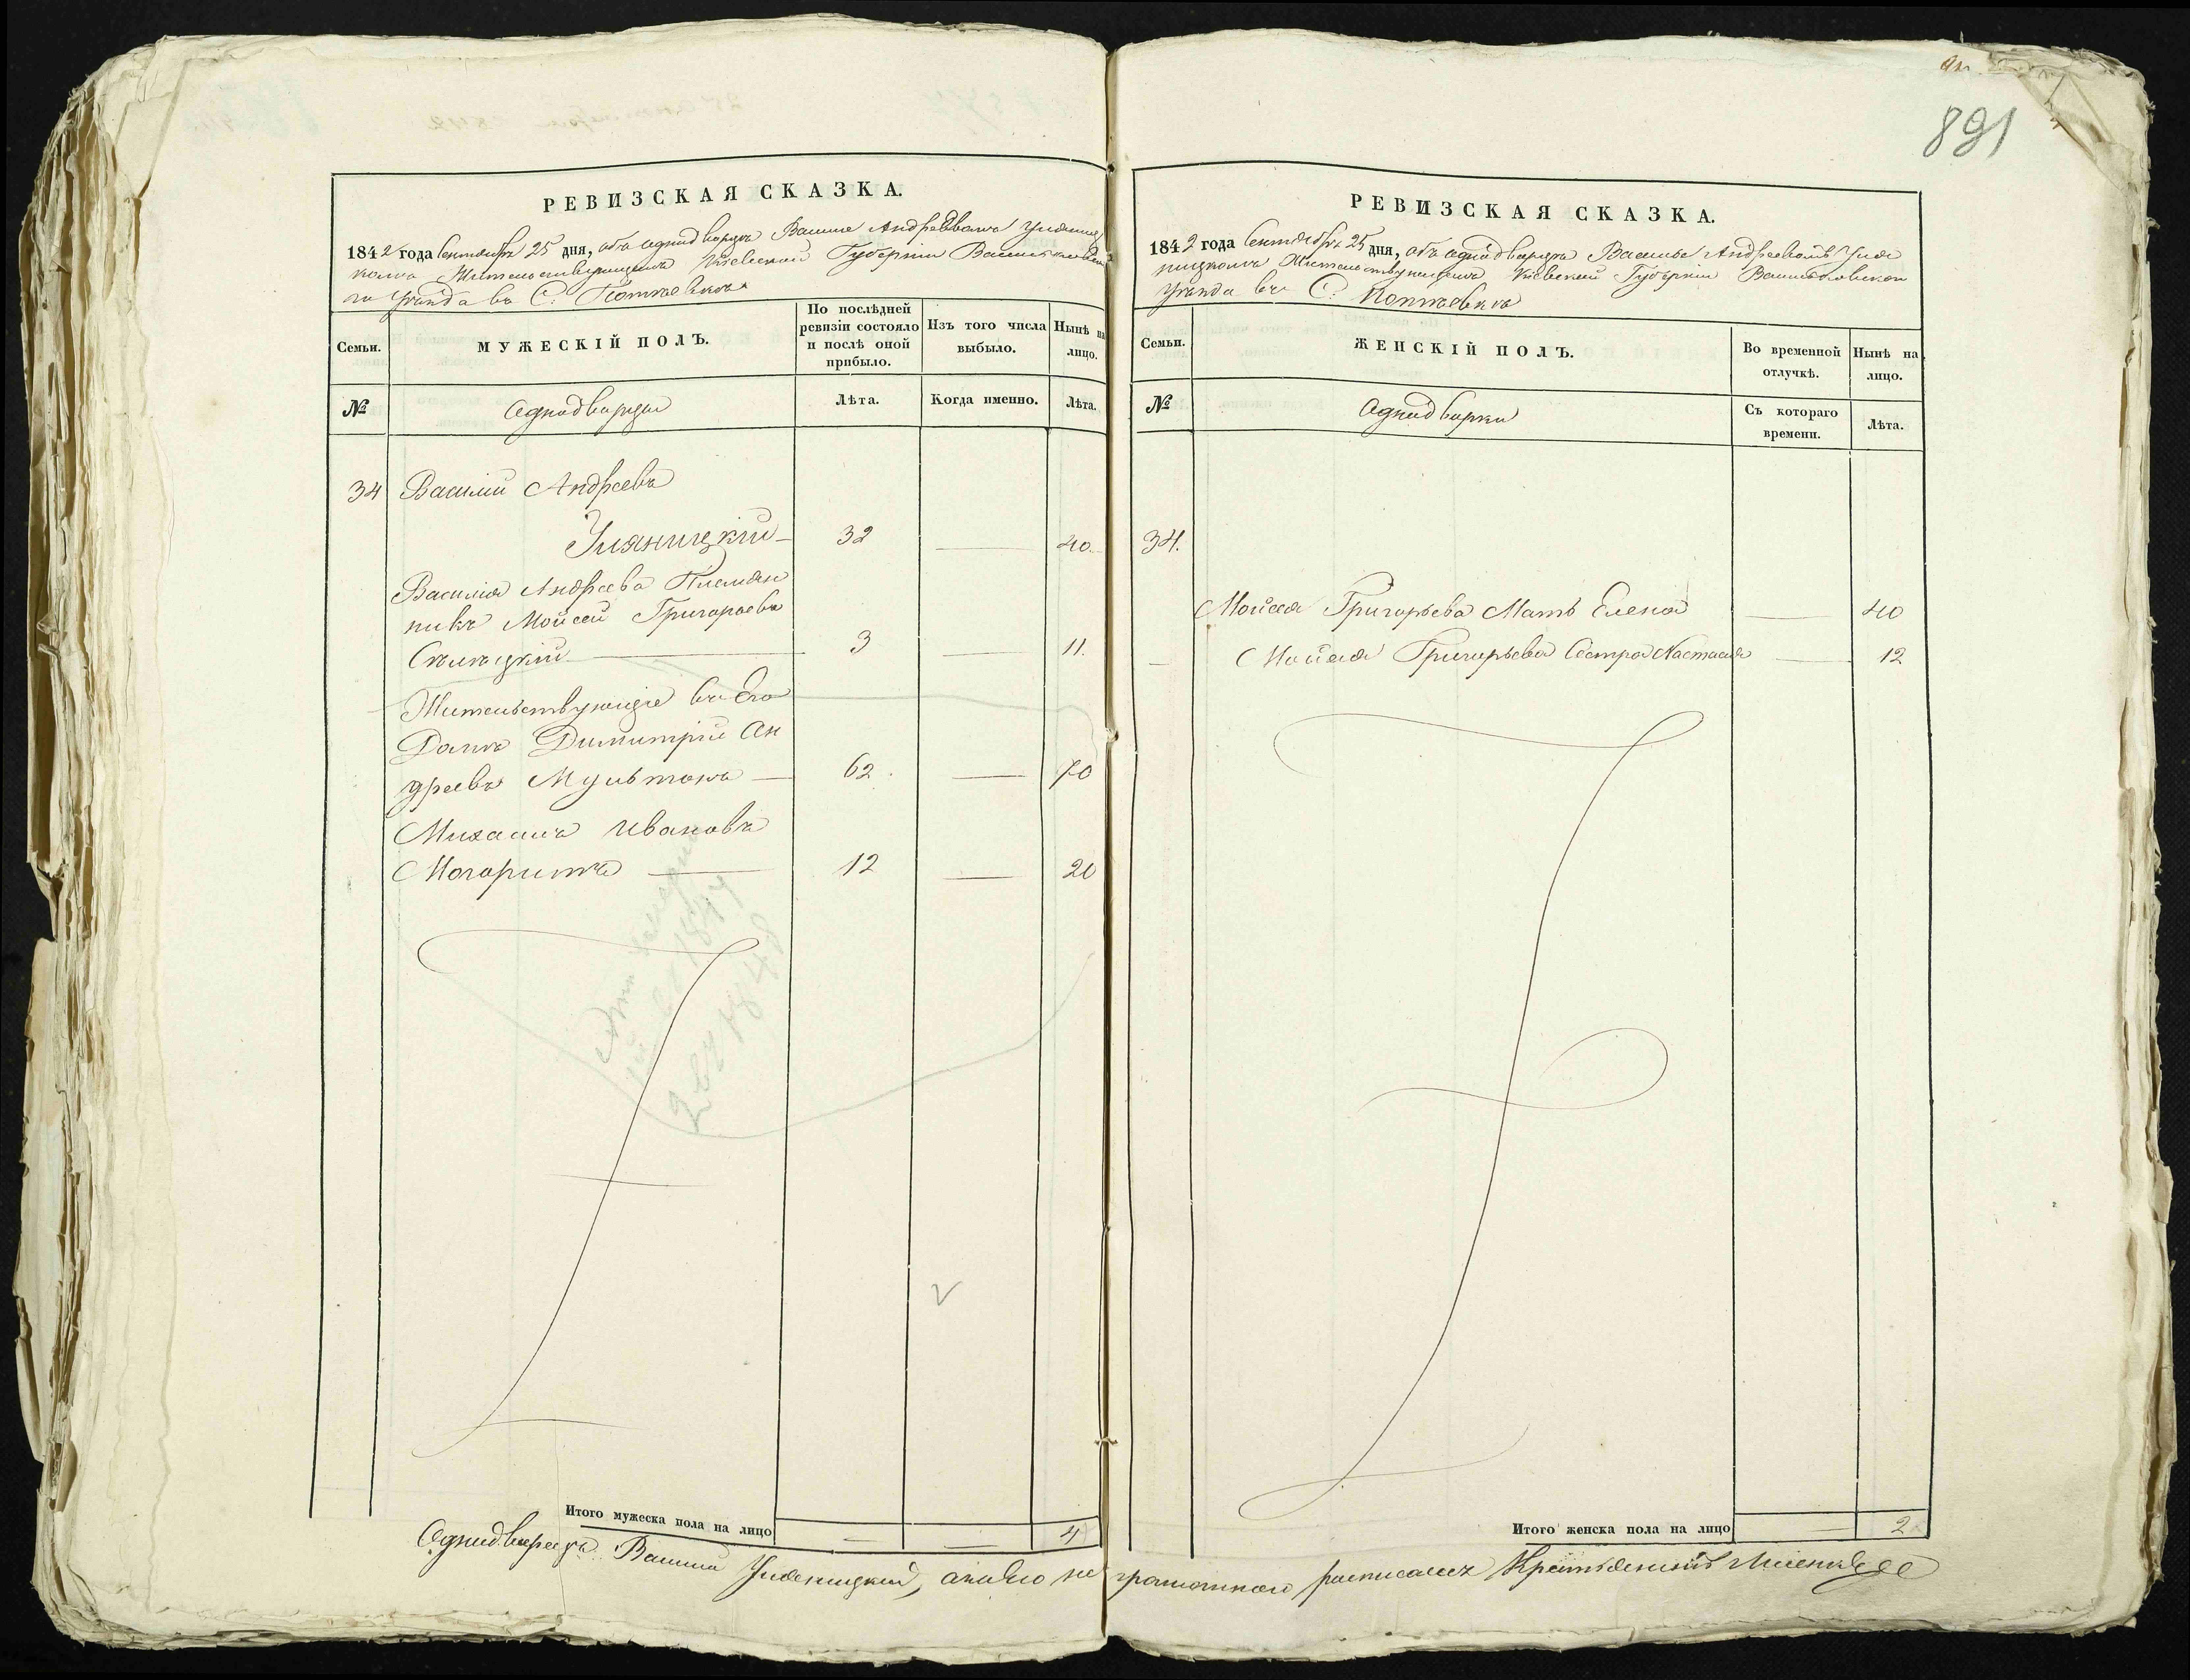 891
РЕВИЗСКАЯ СКАЗКА.
1842 года Сентября 25 дня, объ однодворцѣ Василіе Андрѣевомъ Уляниц
комъ Жительствующемъ Кіевской Губерніи Васильковска
го Уѣзда въ С:
Семьи.
МУЖЕСКІЙ ПОЛЪ.
По послѣдней ревизіи состояло и послѣ оной прибыло.
Изъ того числа выбыло.
Нынѣ на лицо.
№
Однодворцы
Лѣта.
Когда именно.
Лѣта.
34 Василій Андреевъ
Уляницкій 32 — 40
Василія Андреева Племян
никъ Мойсей Григорьевъ
3 — 11.
Жительствующіе въ Его
Домѣ Димитрій Ан
дреевъ 62 — 70
Михаилъ Ивановъ
12 — 20
Итого мужеска пола на лицо — — 4
РЕВИЗСКАЯ СКАЗКА.
1842 года Сентября 25 дня, объ однодворцѣ Василіе Андреевомъ Уля
ницкомъ Жительствующемъ Кіевской Губерніи Васильковскаго
Уѣзда въ С:
Семьи.
ЖЕНСКІЙ ПОЛЪ.
Во временной отлучкѣ.
Нынѣ на лицо.
№
Однодворки
Съ котораго времени.
Лѣта.
34.
Мойсея Григорьева Мать Елена — 40
Мойсея Григорьева Сестра Настасія — 12
Итого женска пола на лицо — 2
Однодворецъ Василій Уляницкій, а неграмотнаго росписался